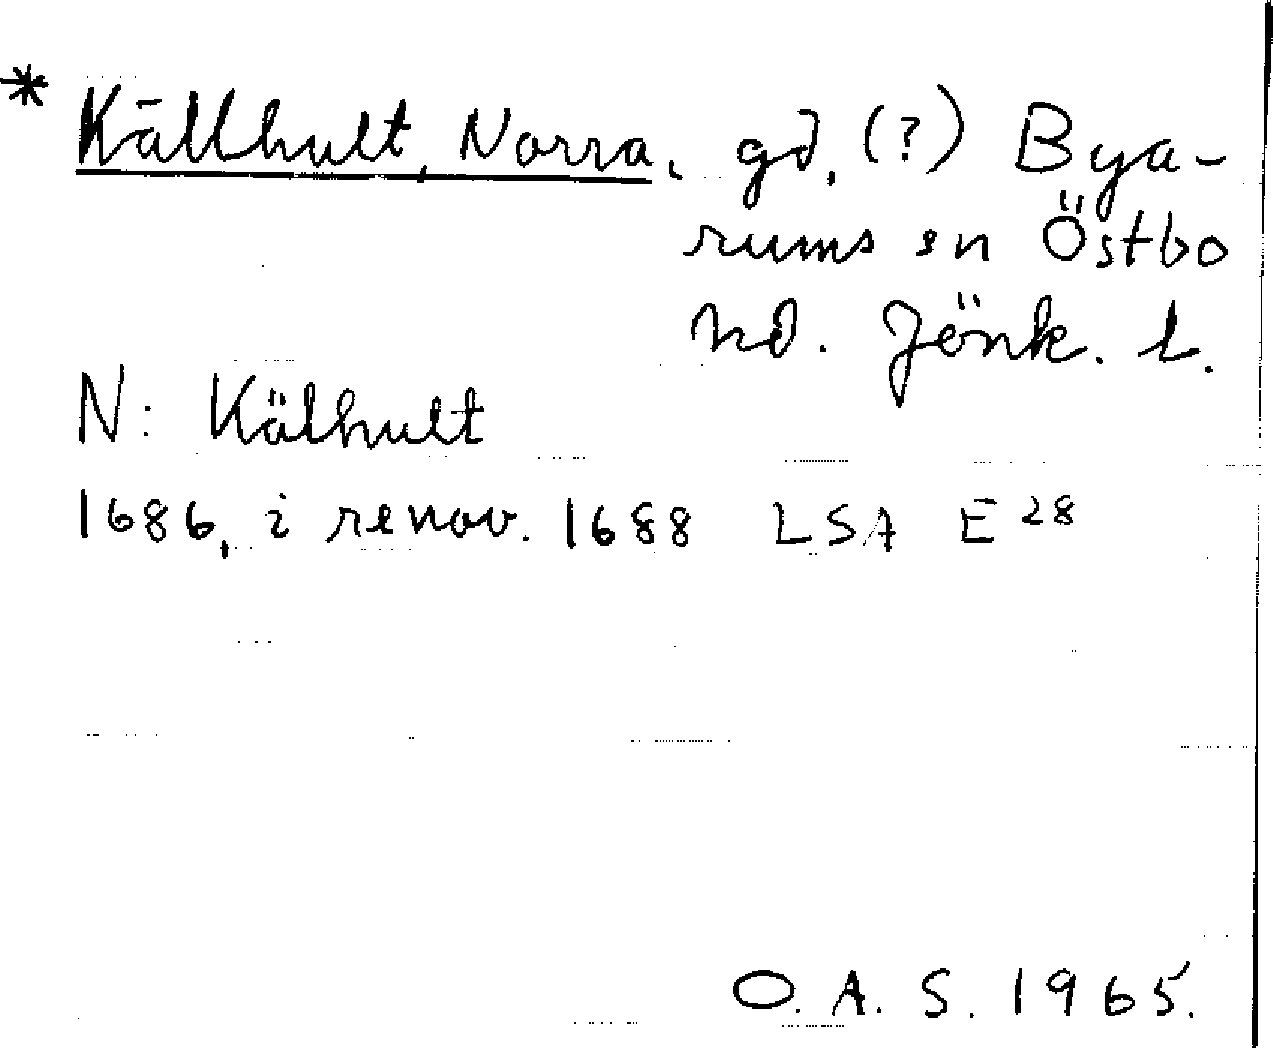 * Källhult, Norra, gd, (?) Bya-
rums sn Östbo
hd. Jönk. l.
N: Kälhult
1686, i renov. 1688 LSA E 28
O. A. S. 1965.